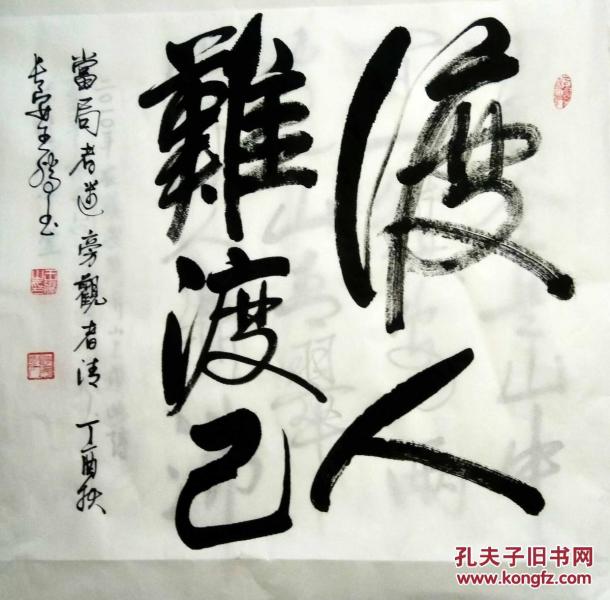 渡人
難渡己
當局者迷 旁觀者清 丁酉秋
長安王
孔夫子旧书网
www.kongfz.com